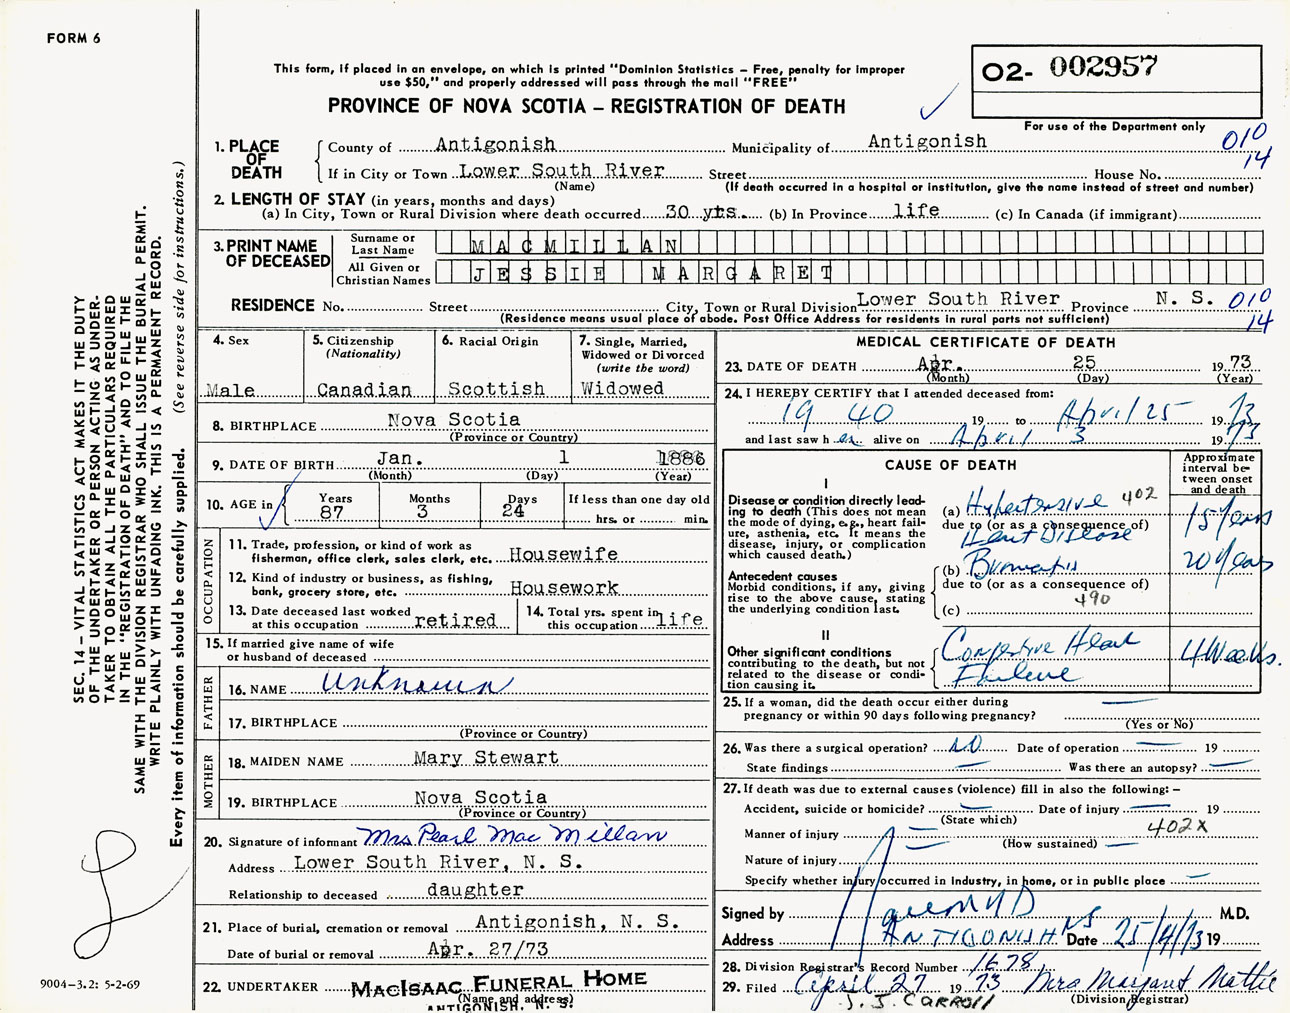 FORM 6
This form, if placed in an envelope, on which is printed "Dominion Statistics – Free, penalty for improper
use $50," and properly addressed will pass through the mail "FREE"
PROVINCE OF NOVA SCOTIA – REGISTRATION OF DEATH
02- 002957
For use of the Department only
010
14
1. PLACE OF DEATH
County of Antigonish Municipality of Antigonish
If in City or Town Lower South River Street House No.
(Name) (If death occurred in a hospital or institution, give the name instead of street and number)
2. LENGTH OF STAY (in years, months and days)
(a) In City, Town or Rural Division where death occurred 30 yrs. (b) In Province life (c) In Canada (if immigrant)
3. PRINT NAME OF DECEASED
Surname or Last Name MACMILLAN
All Given or Christian Names JESSIE MARGARET
RESIDENCE No. Street City, Town or Rural Division Lower South River Province N. S. 010
(Residence means usual place of abode. Post Office Address for residents in rural parts not sufficient) 14
4. Sex
Male
5. Citizenship
(Nationality)
Canadian
6. Racial Origin
Scottish
7. Single, Married,
Widowed or Divorced
(write the word)
Widowed
8. BIRTHPLACE Nova Scotia
(Province or Country)
9. DATE OF BIRTH Jan. 1 1886
(Month) (Day) (Year)
10. AGE in
Years Months Days If less than one day old
87 3 24 hrs. or min.
OCCUPATION
11. Trade, profession, or kind of work as
fisherman, office clerk, sales clerk, etc. Housewife
12. Kind of industry or business, as fishing,
bank, grocery store, etc. Housework
13. Date deceased last worked
at this occupation retired
14. Total yrs. spent in
this occupation life
15. If married give name of wife
or husband of deceased
FATHER
16. NAME Unknown
17. BIRTHPLACE
(Province or Country)
MOTHER
18. MAIDEN NAME Mary Stewart
19. BIRTHPLACE Nova Scotia
(Province or Country)
20. Signature of informant Mrs Pearl Mac Millan
Address Lower South River, N. S.
Relationship to deceased daughter
21. Place of burial, cremation or removal Antigonish, N. S.
Date of burial or removal Apr. 27/73
22. UNDERTAKER MACISAAC FUNERAL HOME
(Name and address)
ANTIGONISH, N. S.
MEDICAL CERTIFICATE OF DEATH
23. DATE OF DEATH Apr. 25 1973
(Month) (Day) (Year)
24. I HEREBY CERTIFY that I attended deceased from:
1940 19 to April 25 1973
and last saw h er alive on April 3 1973
CAUSE OF DEATH
Approximate
interval be-
tween onset
and death
I
Disease or condition directly lead-
ing to death (This does not mean
the mode of dying, e.g., heart fail-
ure, asthenia, etc. It means the
disease, injury, or complication
which caused death.)
(a) Hypertensive 402
due to (or as a consequence of)
Heart Disease
15 Years
Antecedent causes
Morbid conditions, if any, giving
rise to the above cause, stating
the underlying condition last.
(b) 20 Years
due to (or as a consequence of)
490
(c)
II
Other significant conditions
contributing to the death, but not
related to the disease or condi-
tion causing it.
Congestive Heart
Failure
4 Weeks.
25. If a woman, did the death occur either during
pregnancy or within 90 days following pregnancy? —
(Yes or No)
26. Was there a surgical operation? NO Date of operation — 19
State findings — Was there an autopsy? —
27. If death was due to external causes (violence) fill in also the following:–
Accident, suicide or homicide? — Date of injury — 19
(State which) 402X
Manner of injury
(How sustained) —
Nature of injury
Specify whether injury occurred in industry, in home, or in public place —
Signed by MD M.D.
Address ANTIGONISH NS Date 25/4/73 19
28. Division Registrar's Record Number 1678
29. Filed April 27 1973 Mrs Margaret Mattie
J. J. CARROLL (Division Registrar)
SEC. 14 – VITAL STATISTICS ACT MAKES IT THE DUTY
OF THE UNDERTAKER OR PERSON ACTING AS UNDER-
TAKER TO OBTAIN ALL THE PARTICULARS REQUIRED
IN THE "REGISTRATION OF DEATH" AND TO FILE THE
SAME WITH THE DIVISION REGISTRAR WHO SHALL ISSUE THE BURIAL PERMIT.
WRITE PLAINLY WITH UNFADING INK. THIS IS A PERMANENT RECORD.
Every item of information should be carefully supplied. (See reverse side for instructions.)
9004-3.2: 5-2-69